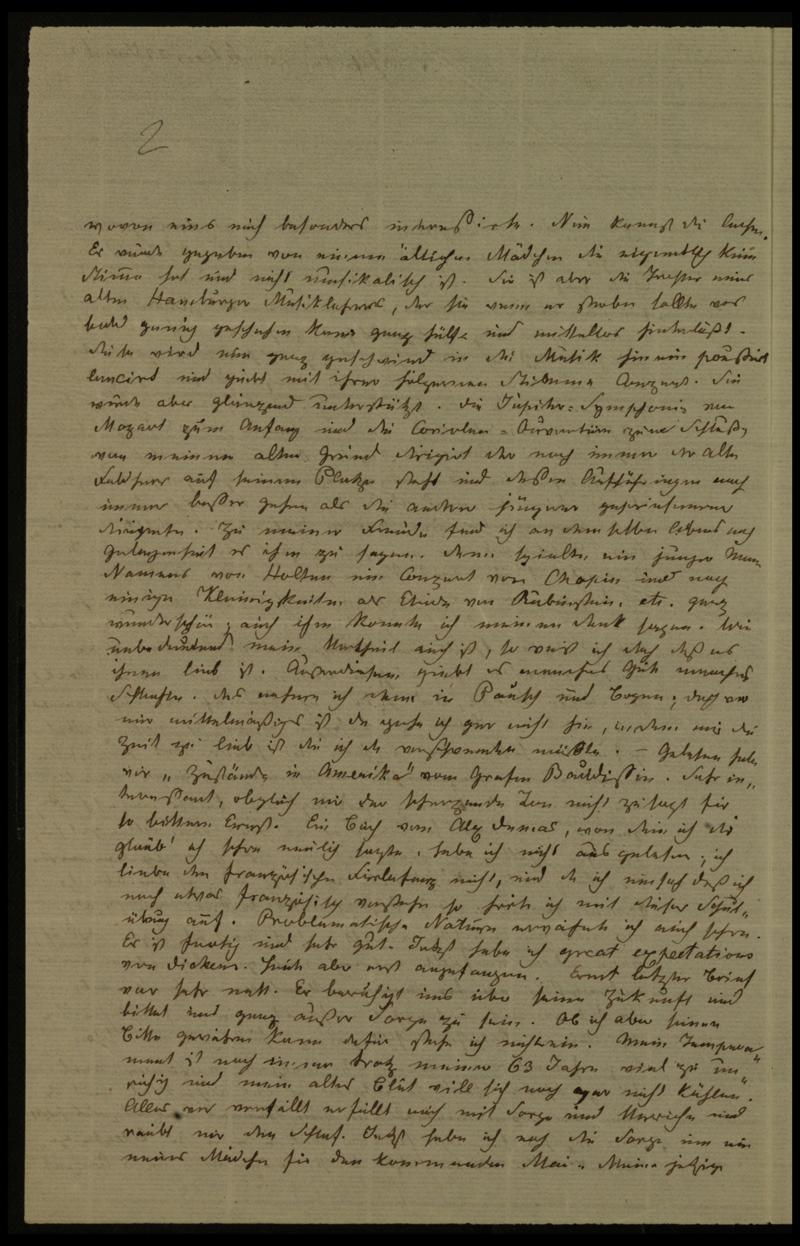 2
wovon eins mich besonders interessirte. Nun kannst du lachen.
Es wurde gegeben von einem ältlichen Mädchen die eigentlich keine
Stimme hat und nicht musikalisch ist. Sie ist aber die Tochter eines
alten Hamburger Musiklehrers, der sie wenn er sterben sollte was
bald genug geschehen kann ganz hülf und mittellos hinterläßt.
Diese wird nun ganz geschwind in die Musik hinein poussirt
lancirt und giebt mit ihrer hölzernen Stimme Conzert. Sie
wurde aber glänzend unterstützt. Die Jupiter-Symphonie von
Mozart zum Anfang und die Coriolan-Ouvertüre zum Schluß,
von meinem alten Freund dirigirt der noch immer der alte
Feldherr auf seinem Platze steht und dessen Aufführungen noch
immer besser gehen als die anderer jüngerer
Dirigenten. Zu meiner Freude fand ich an demselben Abend noch
Gelegenheit es ihm zu sagen. Dann spielte ein junger Mann
Namens von Holten ein Conzert von Chopin und noch
einige Kleinigkeiten als Etude von Rubinstein, etc. ganz
wunderschön; auch ihm konnte ich meinen Dank sagen. Wie
unbedeutend mein Urtheil auch ist, so weiß ich doch daß es
ihnen lieb ist. Ausserdiesem giebt es manches Gute manches
Schlechte. Das nehme ich denn in Pausch und Bogen; daß wo
nur mittelmäßiges ist da gehe ich gar nicht hin, indem mir die
Zeit zu lieb ist die ich da verschwenden müßte. – Gelesen habe
wir „Zustände in Amerika" vom Grafen Baudissin. Sehr in„
teressant, obgleich mir der scherzende Ton nicht zusagt für
so bittern Ernst. Ein Buch von Alex Dumas, von dem ich dir
glaub' ich schon neulich sagte, habe ich nicht ausgelesen; ich
liebe den französischen Firlefanz nicht, und da ich einsah daß ich
noch etwas französisch verstehe so hörte ich mit dieser Schul„
übung auf. Problematische Naturen ich auch schon.
Es ist und sehr gut. Jetzt habe ich great expectations
von Dickens. Hab aber erst angefangen. Ernst letzter Brief
war sehr nett. Er beruhigt uns über seine Zukunft und
bittet uns ganz außer Sorge zu sein. Ob ich aber seiner
Bitte gewähren kann dafür stehe ich nicht ein. Mein Tempera„
ment ist noch immer trotz meiner 63 Jahre viel zu un„
ruhig und mein altes Blut will sich noch gar nicht kühlen.
Alles was vorfällt erfüllt mich mit Sorge und Unruhe und
raubt mir den Schlaf. Jetzt habe ich noch die Sorge um ein
neues Mädchen für den kommenden Mai. Meine jetzige